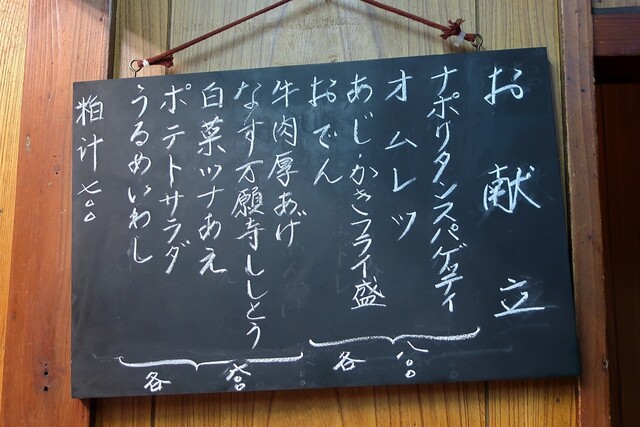 お献立
ナポリタンスパゲッティ
オムレツ
あじ・かきフライ盛
おでん
各 八〇〇
牛肉厚あげ
なす万願寺ししとう
白菜ツナあえ
ポテトサラダ
うるめいわし
各 六〇〇
粕汁 七〇〇